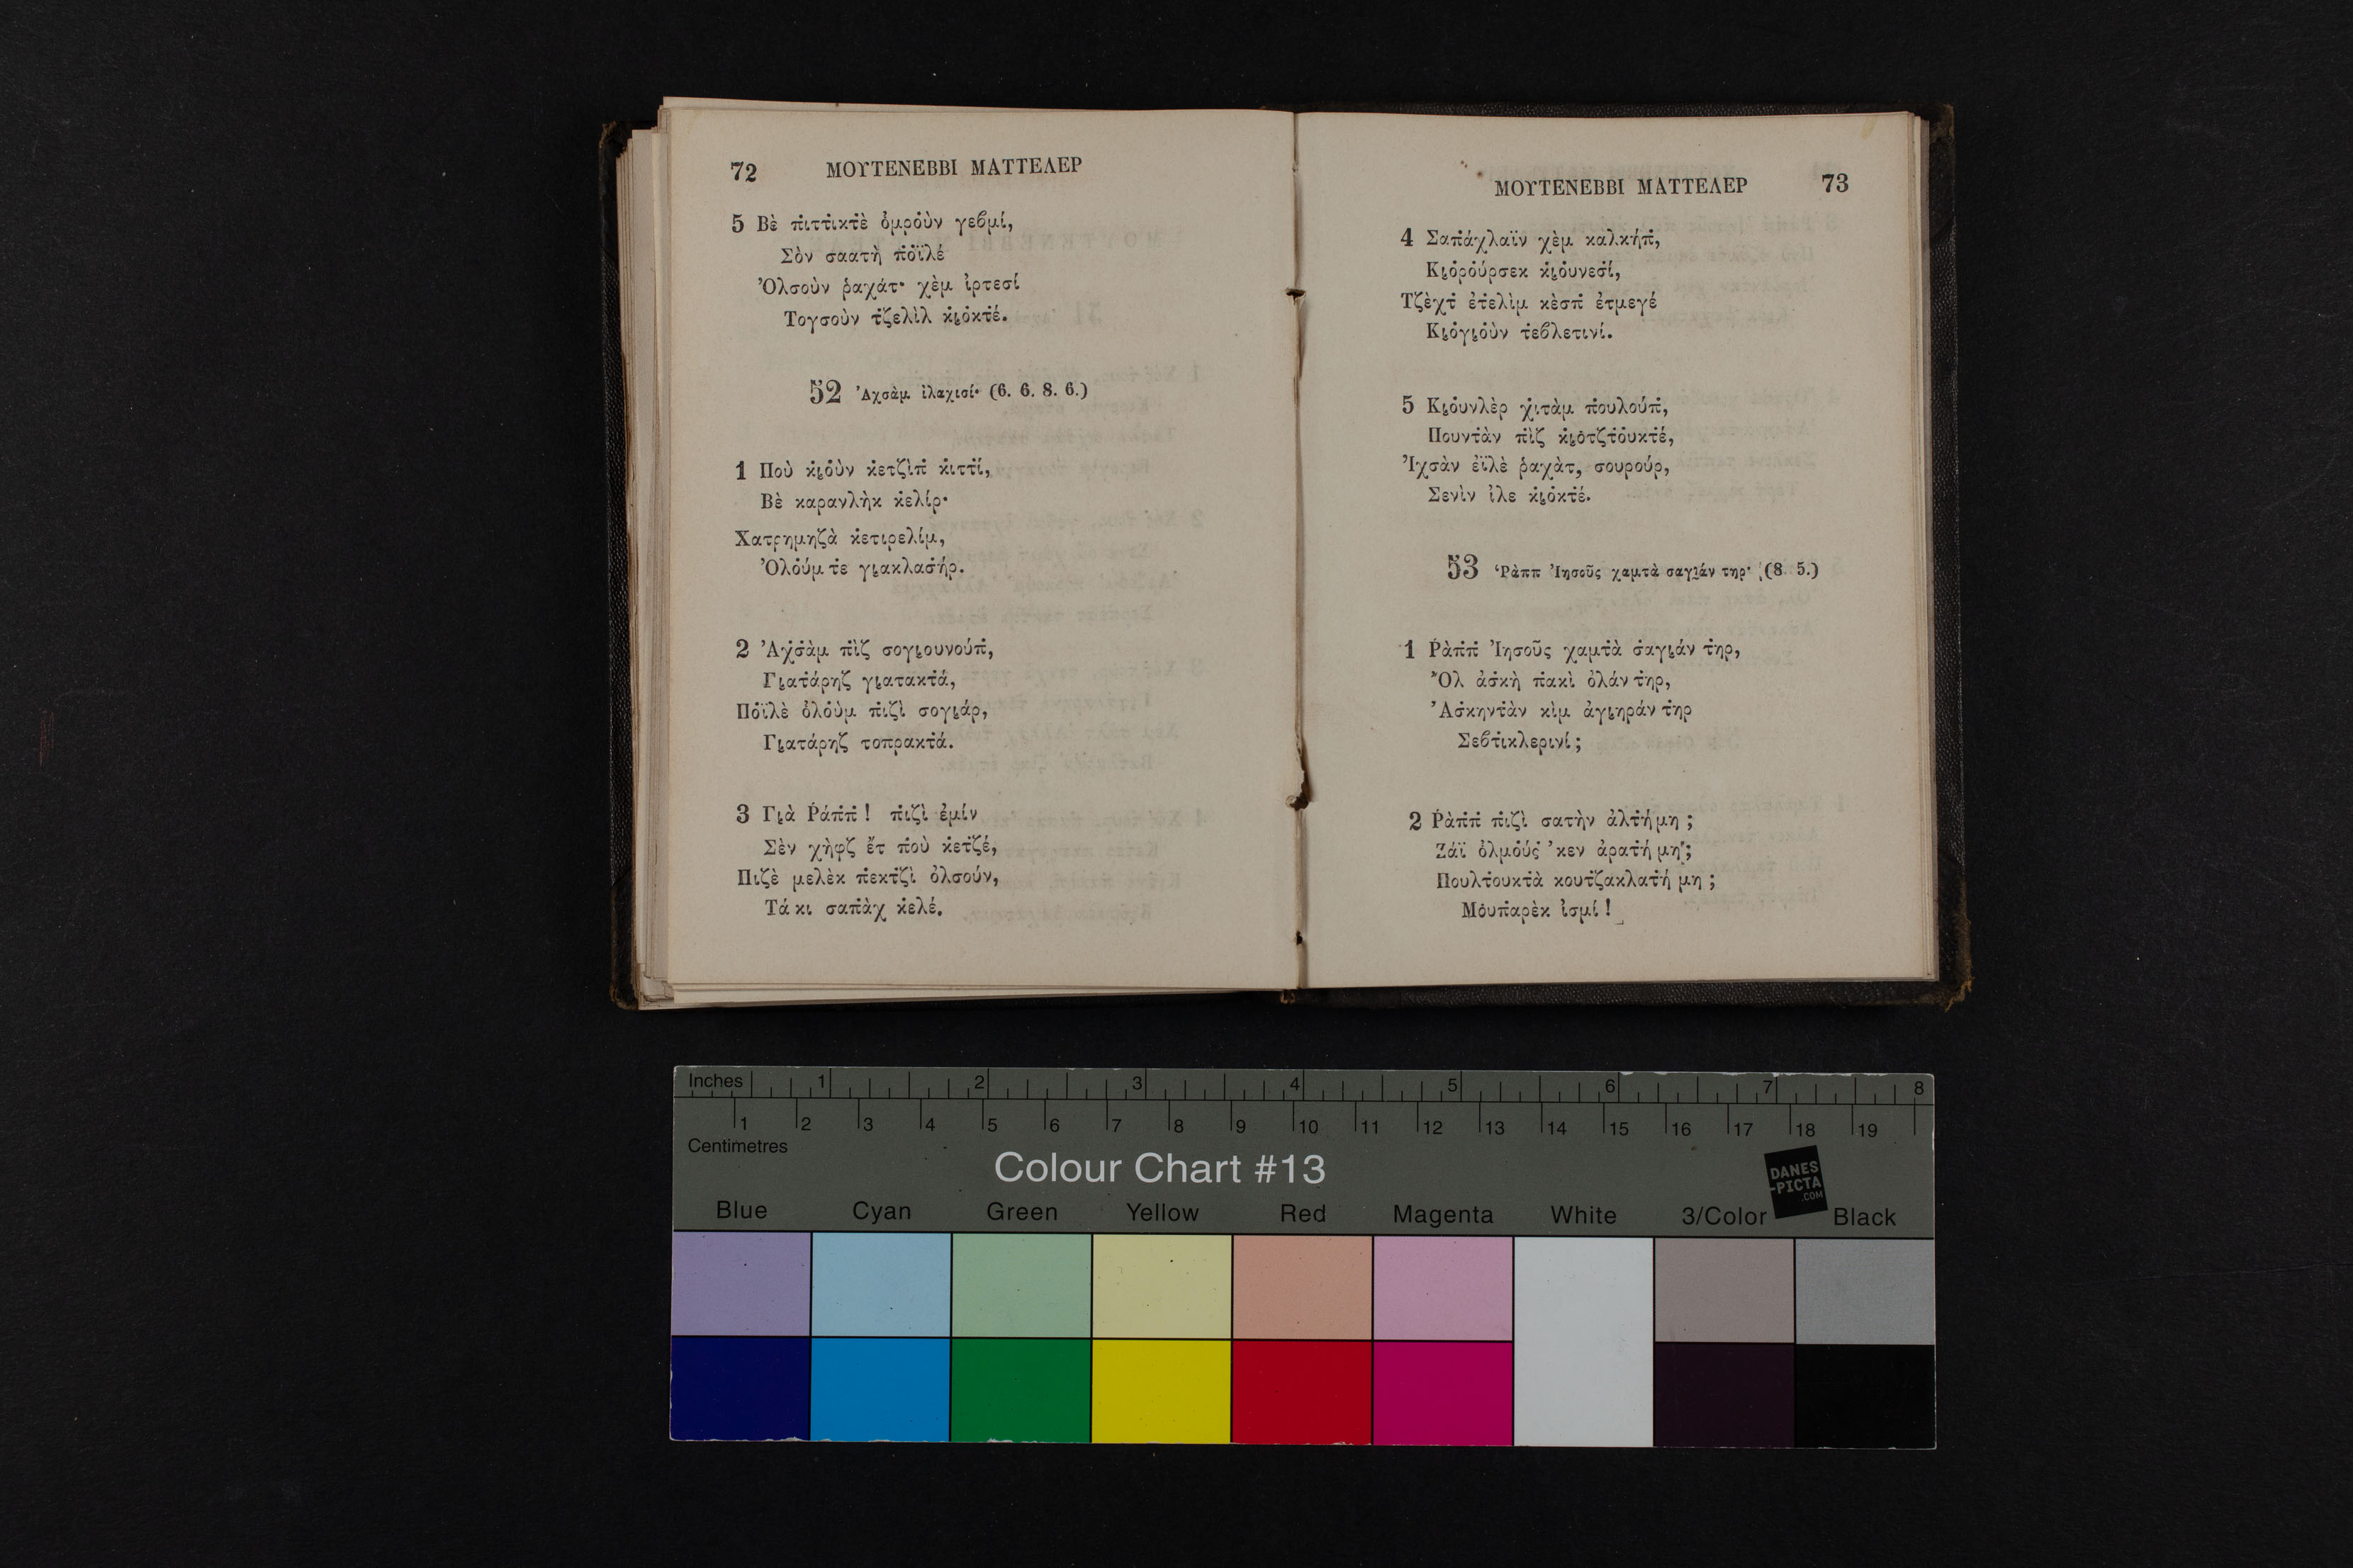 72 ΜΟΥΤΕΝΕΒΒΙ ΜΑΤΤΕΛΕΡ
5 Βὲ π̇ιττικτὲ ὀμρο̇ὺν γεϐμί,
Σὸν σαατὴ π̇ο̇ϊλέ
Ὀλσοὺν ῥαχάτ· χὲμ ἰρτεσί
Τογσοὺν τ̇ζελὶλ κ̇ιο̇κτ̇έ.
52 Ἀχσὰμ ἰλαχισί· (6. 6. 8. 6.)
1 Ποὺ κ̇ιο̇ὺν κ̇ετζὶπ̇ κ̇ιττ̇ί,
Βὲ καρανλὴκ κ̇ελίρ·
Χατρημηζὰ κ̇ετιρελίμ,
Ὀλο̇ύμ τ̇ε γιακλασ̇ήρ.
2 Ἀχσ̇ὰμ π̇ὶζ σογιουνούπ̇,
Γιατ̇άρηζ γιατακτ̇ά,
Πο̇ϊλὲ ὀλο̇ὺμ π̇ιζὶ σογιάρ,
Γιατάρηζ τοπρακτ̇ά.
3 Γιὰ Ῥάπ̇π̇! π̇ιζὶ ἐμίν
Σὲν χὴφζ ἔτ π̇οὺ κ̇ετ̇ζέ,
Πιζὲ μελὲκ π̇εκτ̇ζὶ ὀλσούν,
Τά κι σαπ̇ὰχ κ̇ελέ.
ΜΟΥΤΕΝΕΒΒΙ ΜΑΤΤΕΛΕΡ 73
4 Σαπ̇άχλαϊν χὲμ καλκήπ̇,
Κιο̇ρο̇ύρσεκ κ̇ιο̇υνεσ̇ί,
Τζὲχτ̇ ἐτ̇ελὶμ κὲσπ̇ ἐτμεγέ
Κιο̇γιο̇ὺν τ̇εϐλετινί.
5 Κιο̇υνλὲρ χ̇ιτὰμ π̇ουλούπ̇,
Πουντ̇ὰν π̇ὶζ κ̇ιο̇τζτ̇ο̇υκτ̇έ,
Ἰχσὰν ἐϊλὲ ῥαχὰτ, σουρούρ,
Σενὶν ἰλε κ̇ιο̇κτ̇έ.
53 Ῥὰππ Ἰησοῦς χαμτὰ σαγιάν τηρ· (8. 5.)
1 Ῥὰπ̇π̇ Ἰησοῦς χαμτ̇ὰ σ̇αγιάν τ̇ηρ,
Ὀλ ἀσ̇κὴ π̇ακὶ ὀλάν τ̇ηρ,
Ἀσ̇κηντ̇ὰν κὶμ ἀγιηράν τ̇ηρ
Σεϐτ̇ικλερινί;
2 Ῥὰπ̇π̇ π̇ιζὶ σατὴν ἀλτ̇ή μη;
Ζάϊ ὀλμο̇ύς̇ 'κεν ἀρατ̇ή μη;
Πουλτ̇ουκτ̇ὰ κουτ̇ζακλατ̇ή μη;
Μο̇υπ̇αρὲκ ἰσμί!
Inches 1 2 3 4 5 6 7 8
1 2 3 4 5 6 7 8 9 10 11 12 13 14 15 16 17 18 19
Centimetres
Colour Chart #13
DANES
-PICTA
.COM
Blue Cyan Green Yellow Red Magenta White 3/Color Black